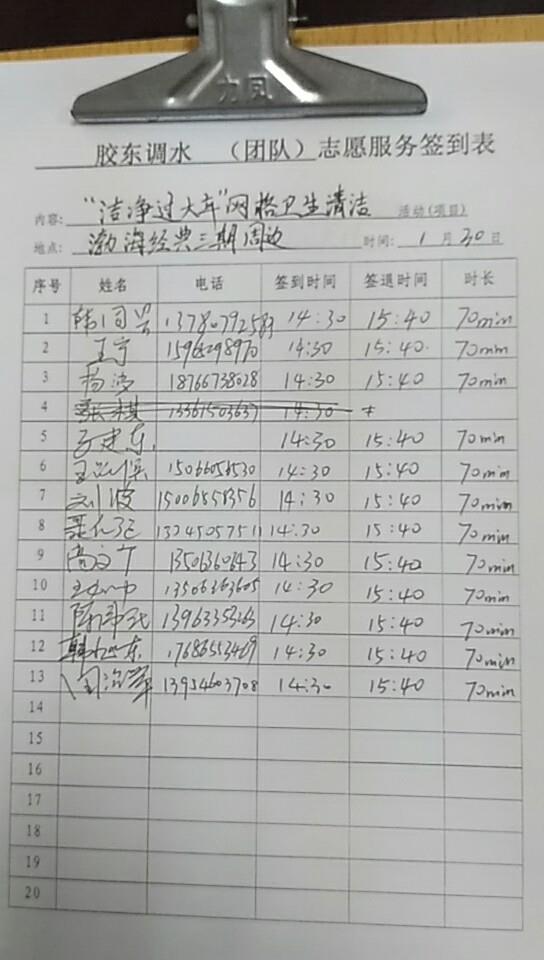 力风
胶东调水 （团队）志愿服务签到表
内容：“洁净过大年”网格卫生清洁 活动(项目)
地点：渤海经典三期周边 时间：1月30日
序号 姓名 电话 签到时间 签退时间 时长
1 韩同兴 13780792589 14:30 15:40 70min
2 王宁 15968298970 14:30 15:40 70min
3 杨涛 18766738028 14:30 15:40 70min
4 13361503637 14:30
5 于建东 14:30 15:40 70min
6 14:30 15:40 70min
7 刘波 15006858356 14:30 15:40 70min
8 14:30 15:40 70min
9 14:30 15:40 70min
10 13506363605 14:30 15:40 70min
11 14:30 15:40 70min
12 17686553469 14:30 15:40 70min
13 13954603708 14:30 15:40 70min
14
15
16
17
18
19
20